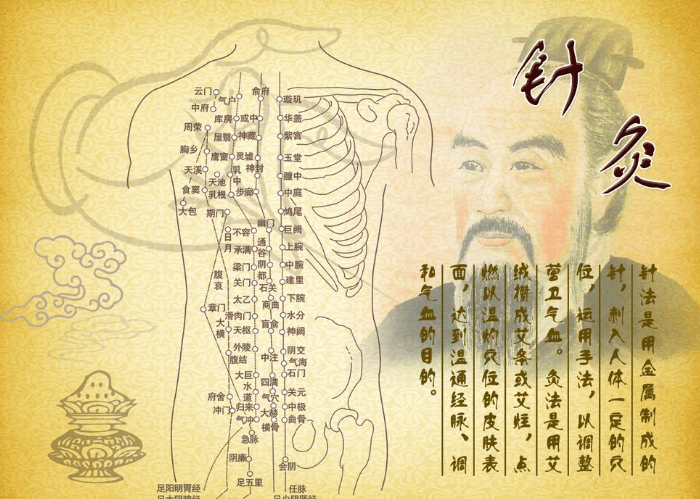 针灸
针法是用金属制成的
针，刺入人体一定的穴
位，运用手法，以调整
营卫气血。灸法是用艾
绒攒成艾条或艾炷，点
燃以温灼穴位的皮肤表
面，达到温通经脉、调
和气血的目的。
云门
气户
俞府
璇玑
中府
库房
或中
华盖
周荣
屋翳
神藏
紫宫
胸乡
膺窗
灵墟
玉堂
天溪
天池
乳中
神封
膻中
食窦
乳根
步廊
中庭
大包
期门
鸠尾
日月
不容
幽门
巨阙
承满
通谷
上脘
梁门
阴都
中脘
腹哀
关门
石关
建里
太乙
商曲
下脘
章门
滑肉门
水分
大横
天枢
肓俞
神阙
外陵
中注
阴交
腹结
气海
大巨
四满
石门
水道
气穴
关元
府舍
归来
大赫
中极
冲门
气冲
横骨
曲骨
急脉
阴廉
会阴
足五里
足阳明胃经
任脉